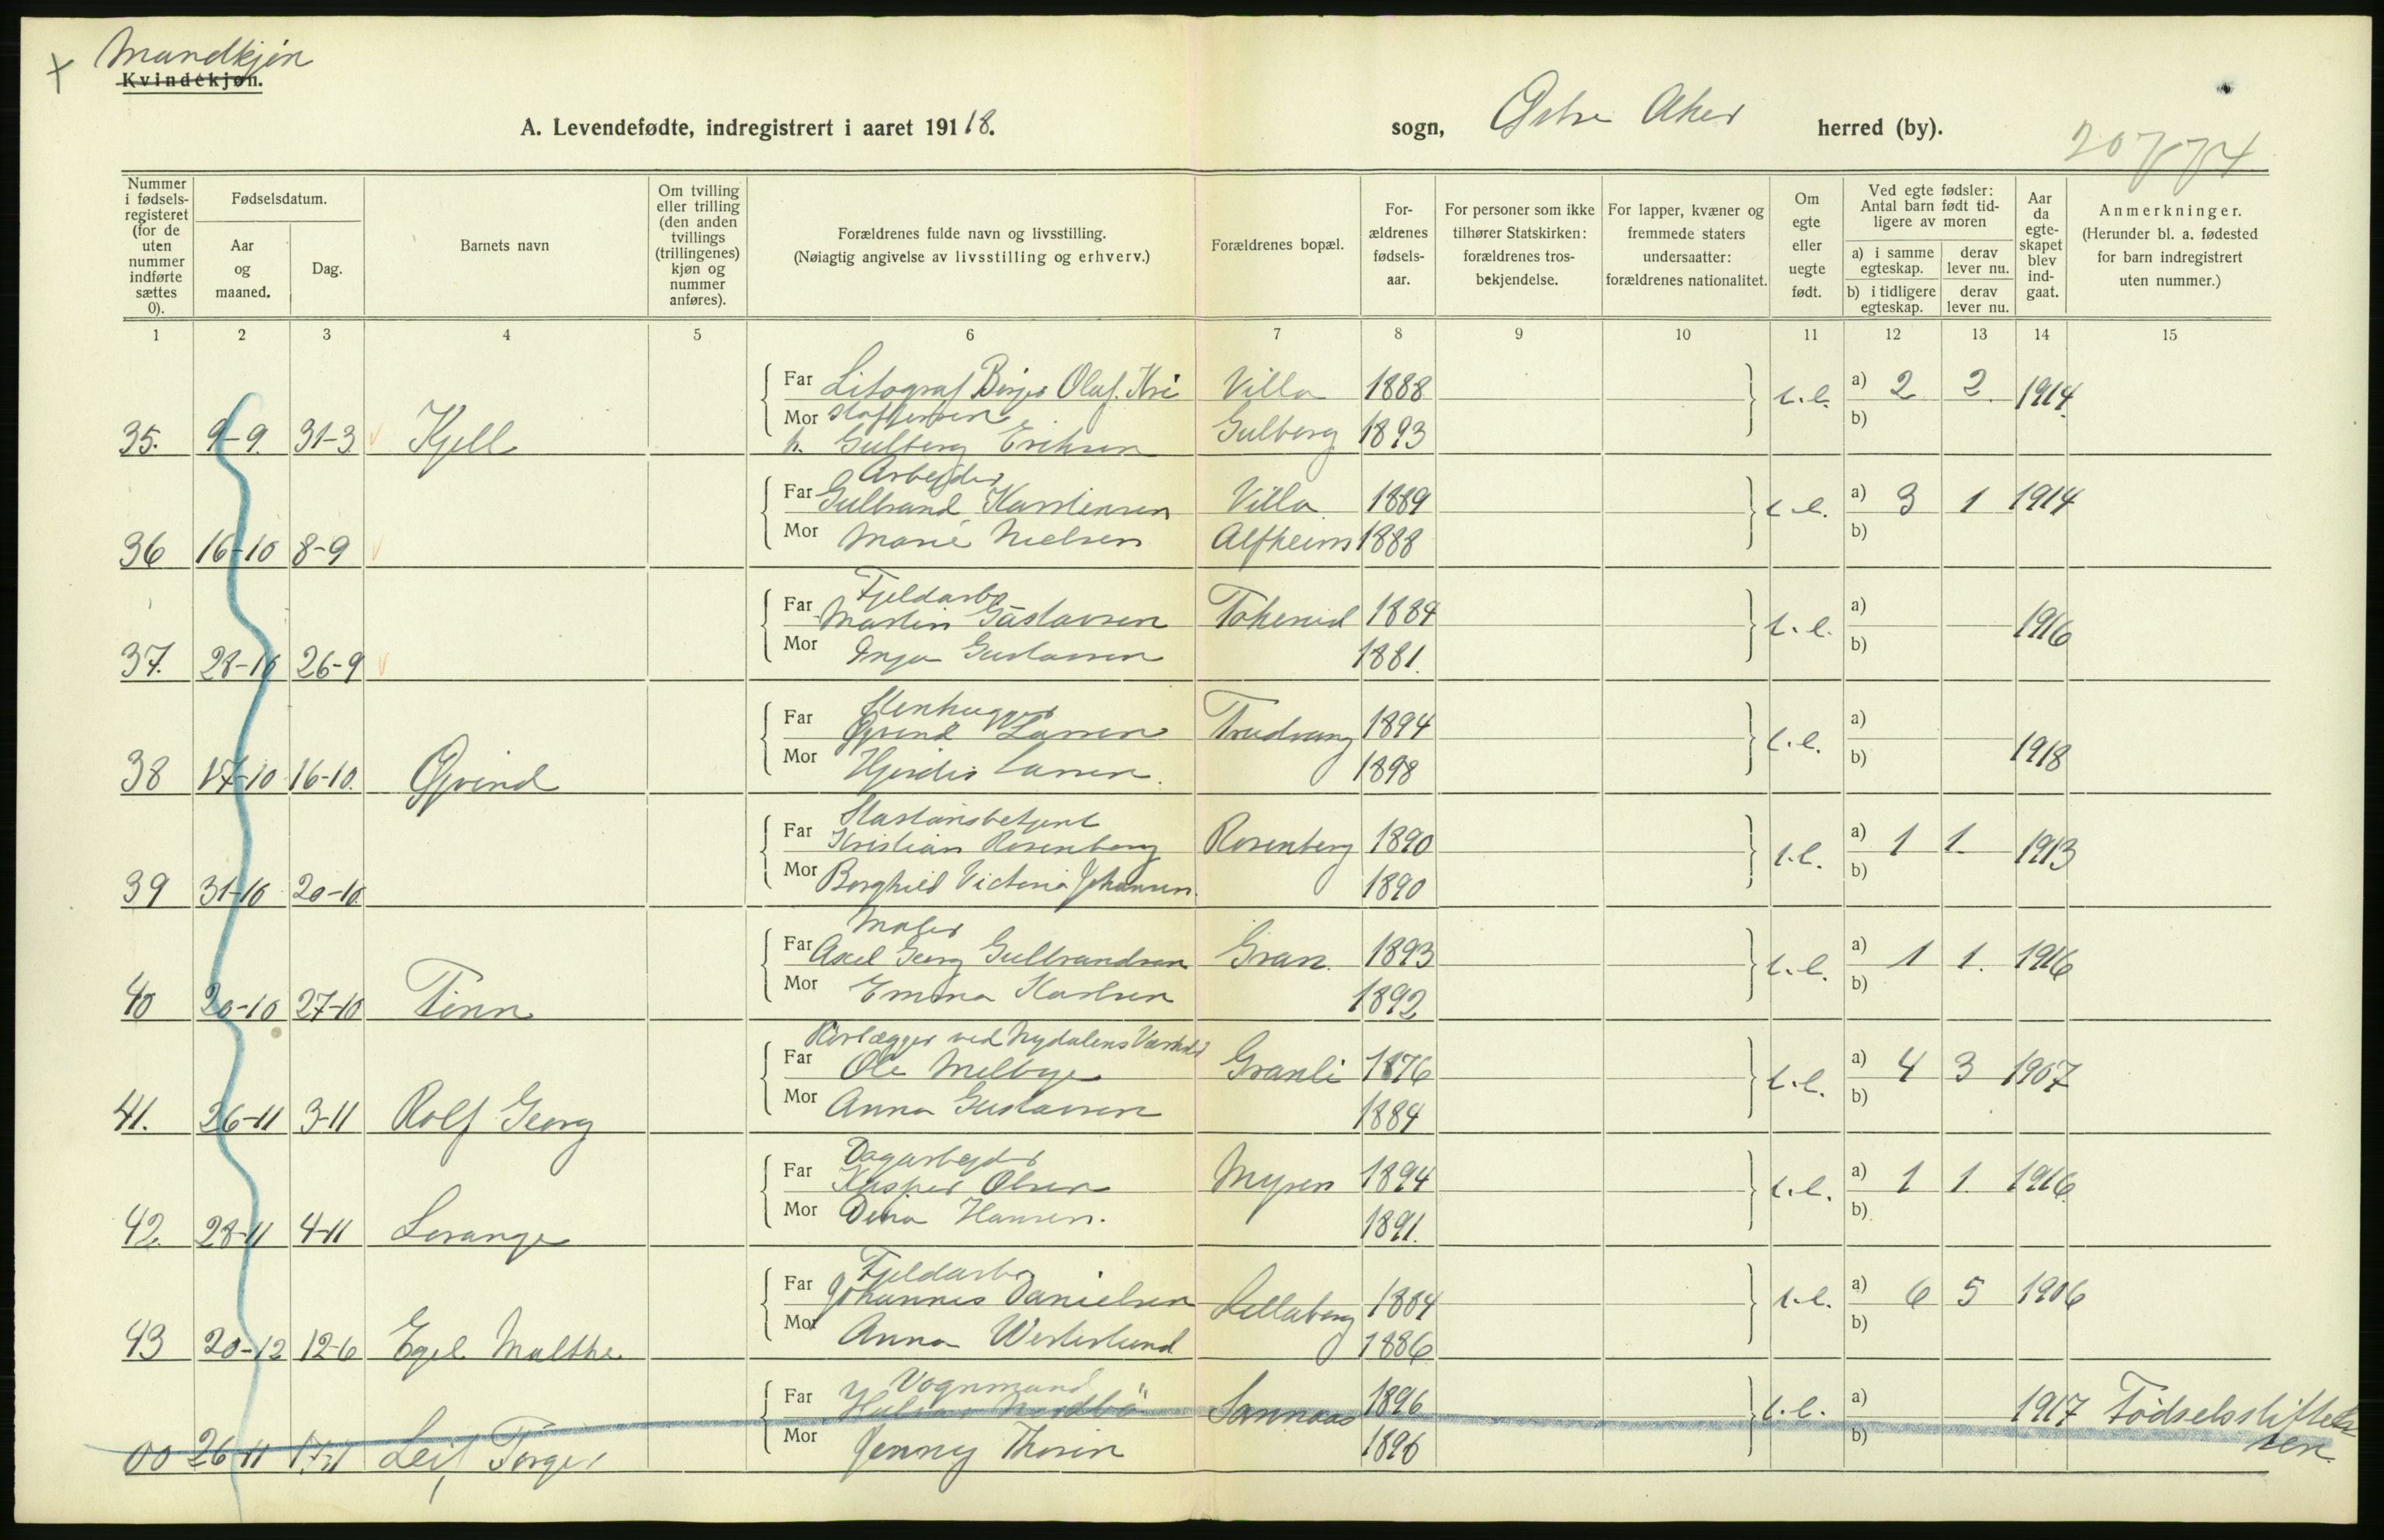 Mandkjøn
Kvindekjøn.
A. Levendefødte, indregistrert i aaret 191 18.
sogn, Østre Aker herred (by).
20774
Nummer i fødsels-registeret (for de uten nummer indførte sættes 0).
Fødselsdatum.
Aar og maaned.
Dag.
Barnets navn
Om tvilling eller trilling (den anden tvillings (trillingenes) kjøn og nummer anføres).
Forældrenes fulde navn og livsstilling.
(Nøiagtig angivelse av livsstilling og erhverv.)
Forældrenes bopæl.
For-ældrenes fødsels-aar.
For personer som ikke tilhører Statskirken: forældrenes tros-bekjendelse.
For lapper, kvæner og fremmede staters undersaatter: forældrenes nationalitet.
Om egte eller uegte født.
Ved egte fødsler: Antal barn født tid-ligere av moren
a) i samme egteskap. derav lever nu.
b) i tidligere egteskap. derav lever nu.
Aar da egte-skapet blev ind-gaat.
Anmerkninger.
(Herunder bl. a. fødested for barn indregistrert uten nummer.)
1 2 3 4 5 6 7 8 9 10 11 12 13 14 15
Far Litograf Birger Olaf. Kri Villa 1888 a) 2 2. 1914.
Mor stoffersen b)
35. 9-9. 31-3 Kjell h. Gulberg Eriksen Gulberg 1893
Arbejder
Far Gulbrand Karstensen Villa 1889 a) 3 1 1914
36 16-10 8-9 Mor Marie Nielsen Alfheim 1888 b)
Fjeldarb.
Far Martin Gustavsen Tokerud 1884 a) 1916
37. 28-10 26-9 Mor Inga Gustavsen 1881. b)
Stenhugger
Far Øjvind Larsen Trudvang 1894 a) 1918
38 17-10 16-10. Øjvind Mor Hjerdis Larsen. 1898 b)
Stasionsbetjent
Far Kristian Rosenberg Rosenberg 1890 a) 1 1. 1913
39 31-10 20-10 Mor Borghild Victoria Johansen. 1890 b)
Maler
Far Axel Georg Gulbrandsen Gran. 1893 a) 1 1. 1916
40 20-10 27-10 Finn Mor Emma Karlsen 1892 b)
Rørlægger ved Nydalens Værksted
Far Ole Melbye Granli 1876 a) 4 3 1907
41. 26-11 3-11 Rolf Georg Mor Anna Gustavsen 1884 b)
Dagarbejder
Far Kasper Olsen Myren 1894 a) 1 1. 1916.
42. 28-11 4-11 Lorange Mor Dina Hansen. 1891. b)
Fjeldarb.
Far Johannes Danielsen Lillaberg 1884 a) 6 5 1906
43 20-12 12-6 Egil Malthe Mor Anna Westerlund 1886 b)
Vognmand
Far 1896 a) 1917 Fødselsstiftelsen
00 26-11 Leif Torger Mor Jenny Thorin Sannaas 1896 b)